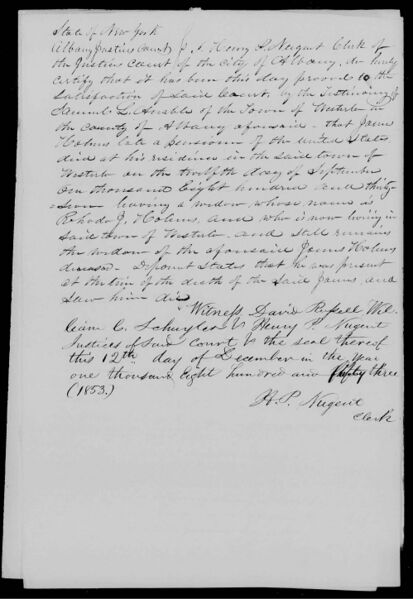 State of New York
Albany Justices Court } I, Henry P. Nugent Clerk of
the Justices Court of the City of Albany, do hereby
certify that it has been this day proved to the
satisfaction of said Court, by the testimony of
Samuel L. of the Town of Westerlo in
the County of Albany aforesaid - that James
Holmes late a Pensioner of the United States
died at his residence in the said town of
Westerlo on the twelfth day of September
One thousand Eight hundred and thirty-
seven leaving a widow, whose name is
Rhoda J. Holmes, and who is now living in
said town of Westerlo and still remains
the widow of the aforesaid James Holmes
deceased - Deponent States that he was present
at the time of the death of the said James and
saw him die
Witness, David Russell Wil
liam C. Schuyler & Henry P. Nugent
Justices of said Court & the seal thereof
this 12th day of December in the year
one thousand Eight hundred and fifty three
(1853.)
H. P. Nugent
Clerk